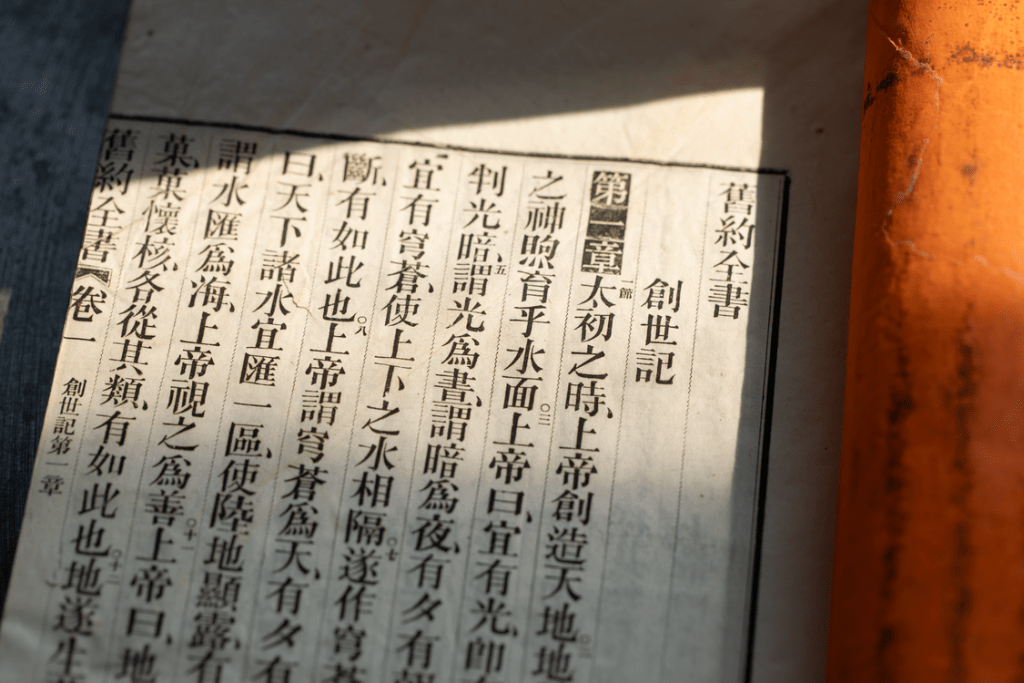 舊約全書
創世記
第一章 一節 太初之時、上帝創造天地、〇二地
之神煦育乎水面、〇三上帝曰、宜有光、即
判光暗、五謂光爲晝、謂暗爲夜、有夕有
宜有穹蒼、使上下之水相隔、〇七遂作穹蒼
斷、有如此也、〇八上帝謂穹蒼爲天、有夕有
曰、天下諸水宜匯一區、使陸地顯露、有
謂水匯爲海、上帝視之爲善、〇十一上帝曰、地
菓、菓懷核、各從其類、有如此也、〇十二地遂生
舊約全書 卷一 創世記第一章